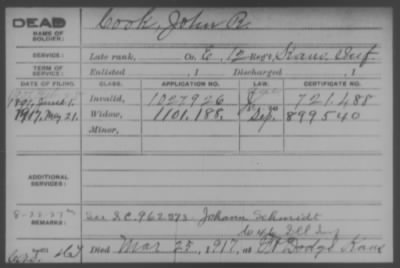 DEAD Cook, John R.
NAME OF SOLDIER:
SERVICE: Late rank, Co. E, 12 Reg't, Kans. Inf.
TERM OF SERVICE: Enlisted , 1 Discharged , 1
DATE OF FILING. CLASS. APPLICATION NO. LAW. CERTIFICATE NO.
1891, June 1. Invalid, 1027926 721.488
1917, May 21. Widow, 1101.188. Sep. 899540
Minor,
ADDITIONAL SERVICES:
See S.C. 962373. Johann Schmidt
Ill
Died Mar 25, 1917, at Ft Dodge Kans